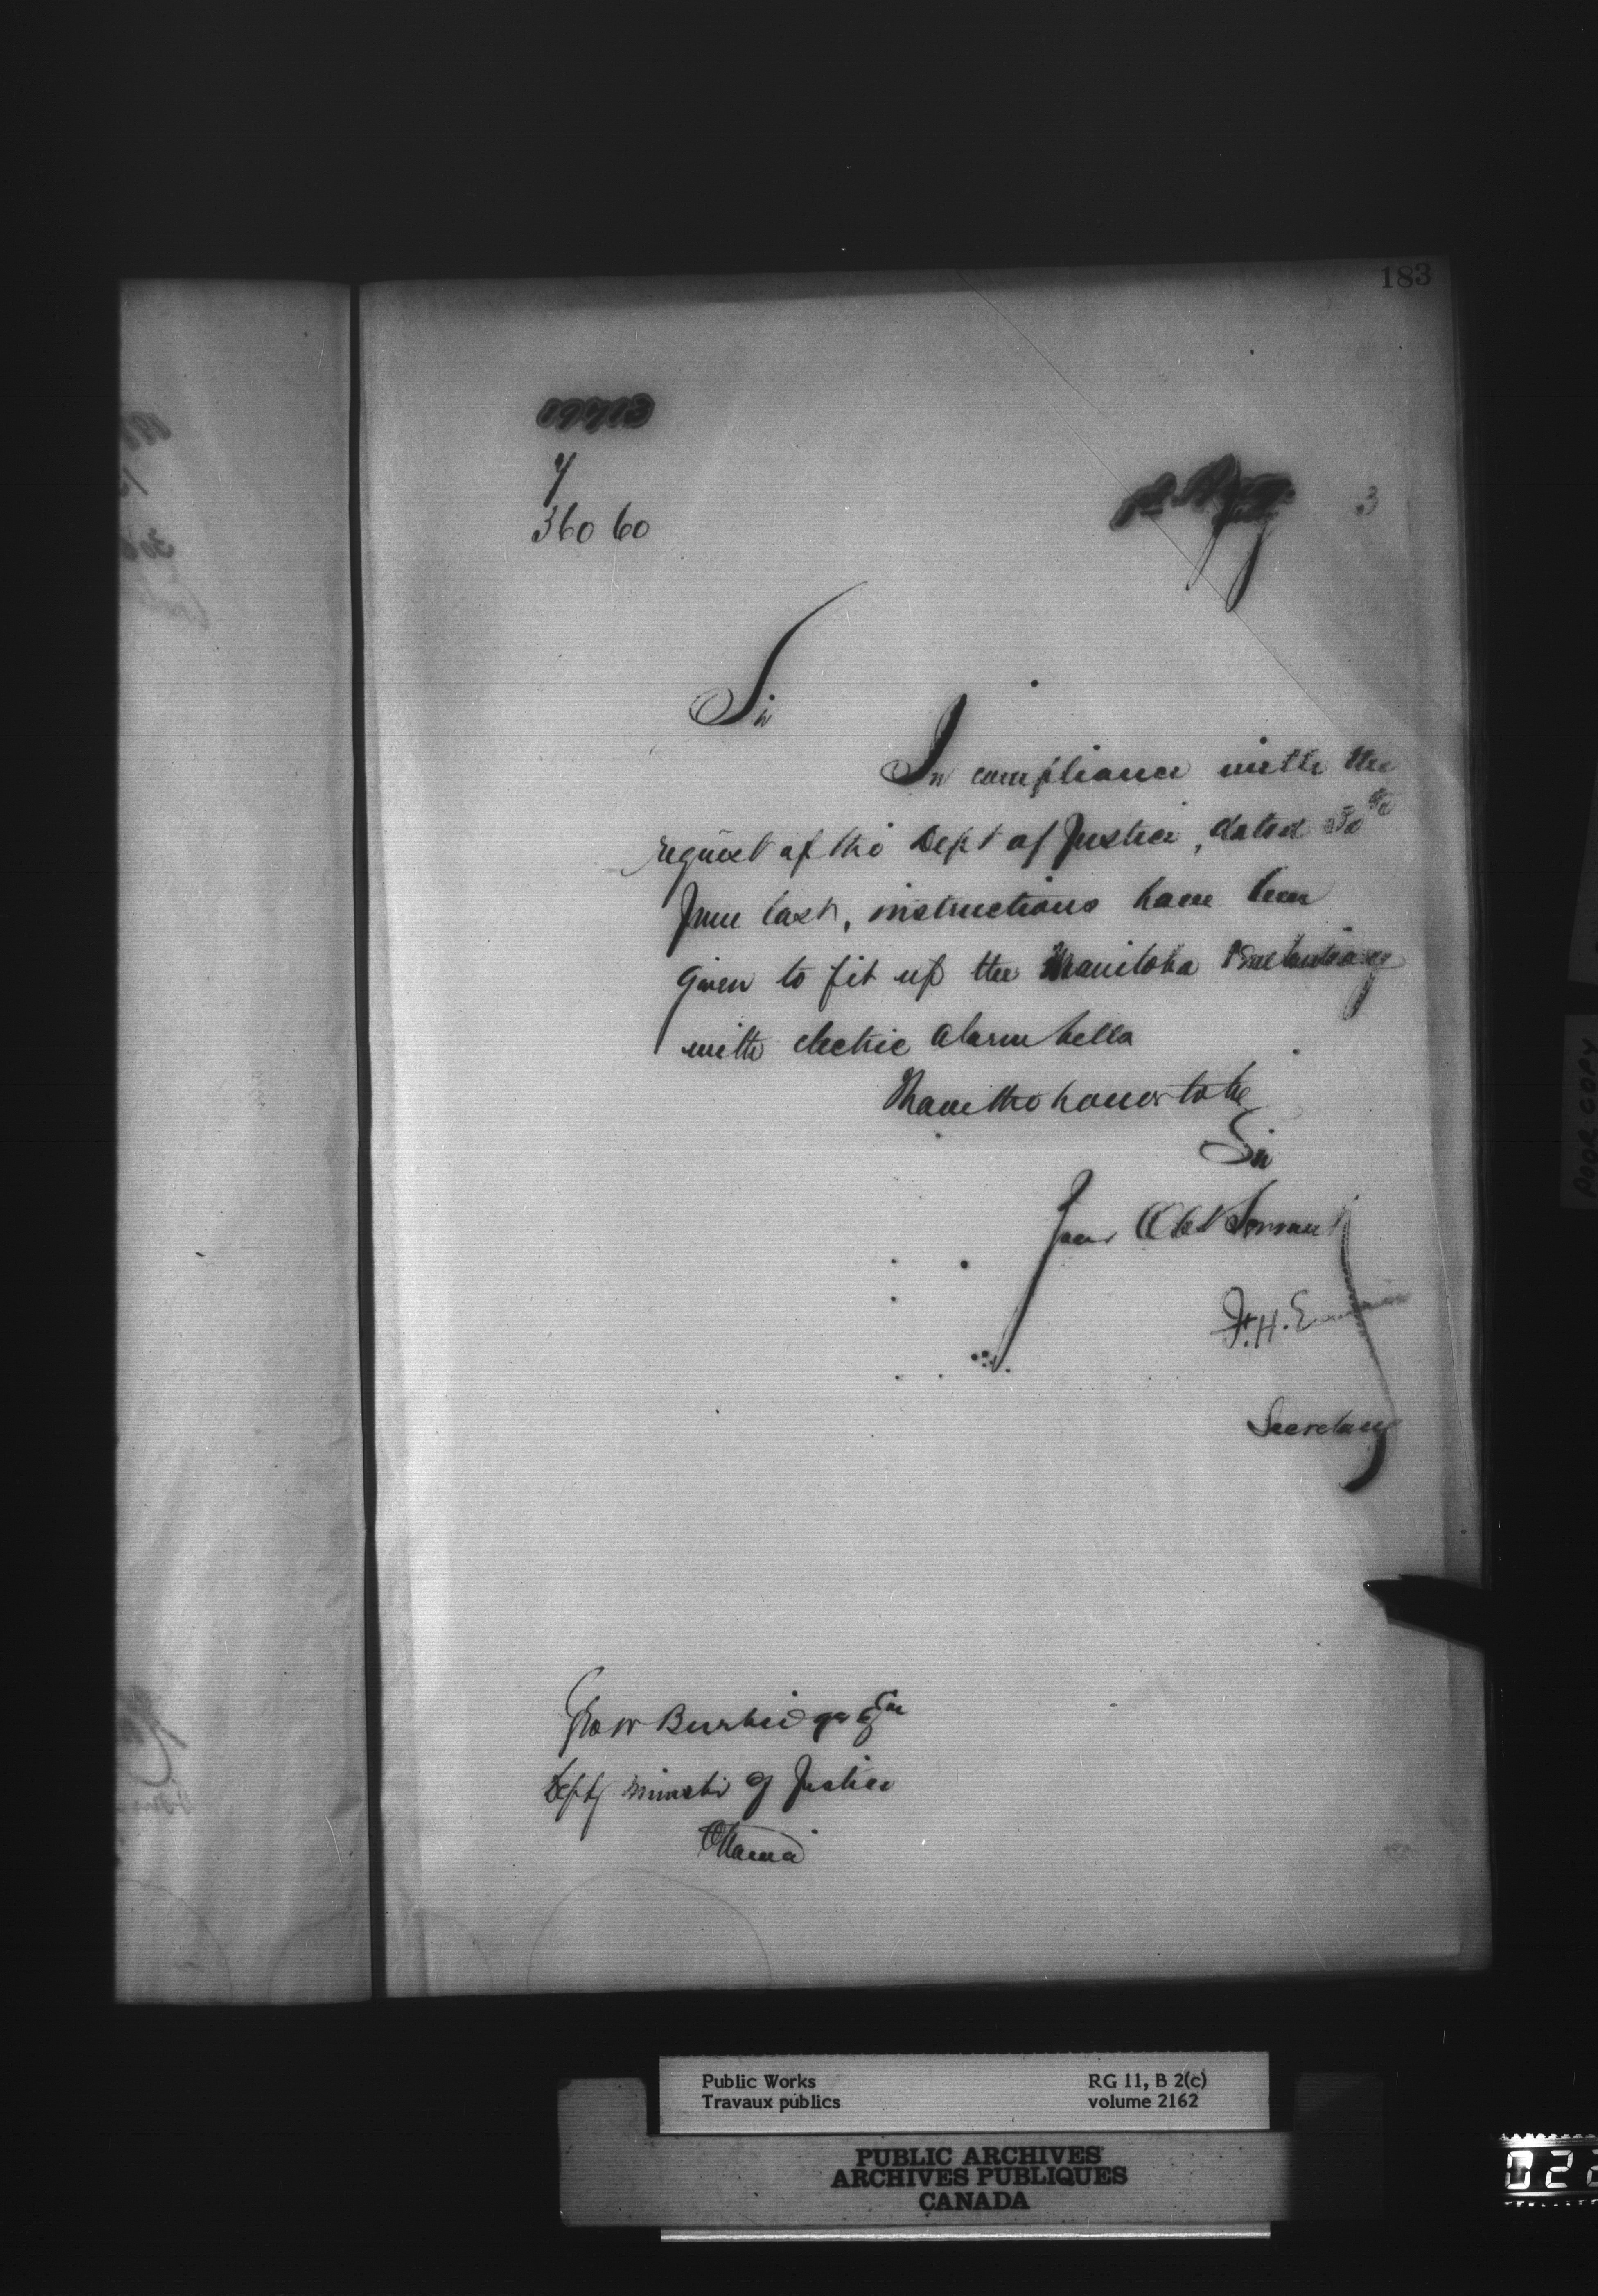 183
36060
3
Sir
In compliance with the
request of the Dept of Justice, dated 30th
June last, instructions have been
given to fit up the Manitoba Penitentiary
with electric alarm bells
I have the honor to be
Sir
Your Obt Servant
F. H. Ennis
Secretary
Geo W Burbidge Esq
Depty Minister of Justice
Ottawa
POOR COPY
Public Works
Travaux publics
RG 11, B 2(c)
volume 2162
PUBLIC ARCHIVES
ARCHIVES PUBLIQUES
CANADA
022